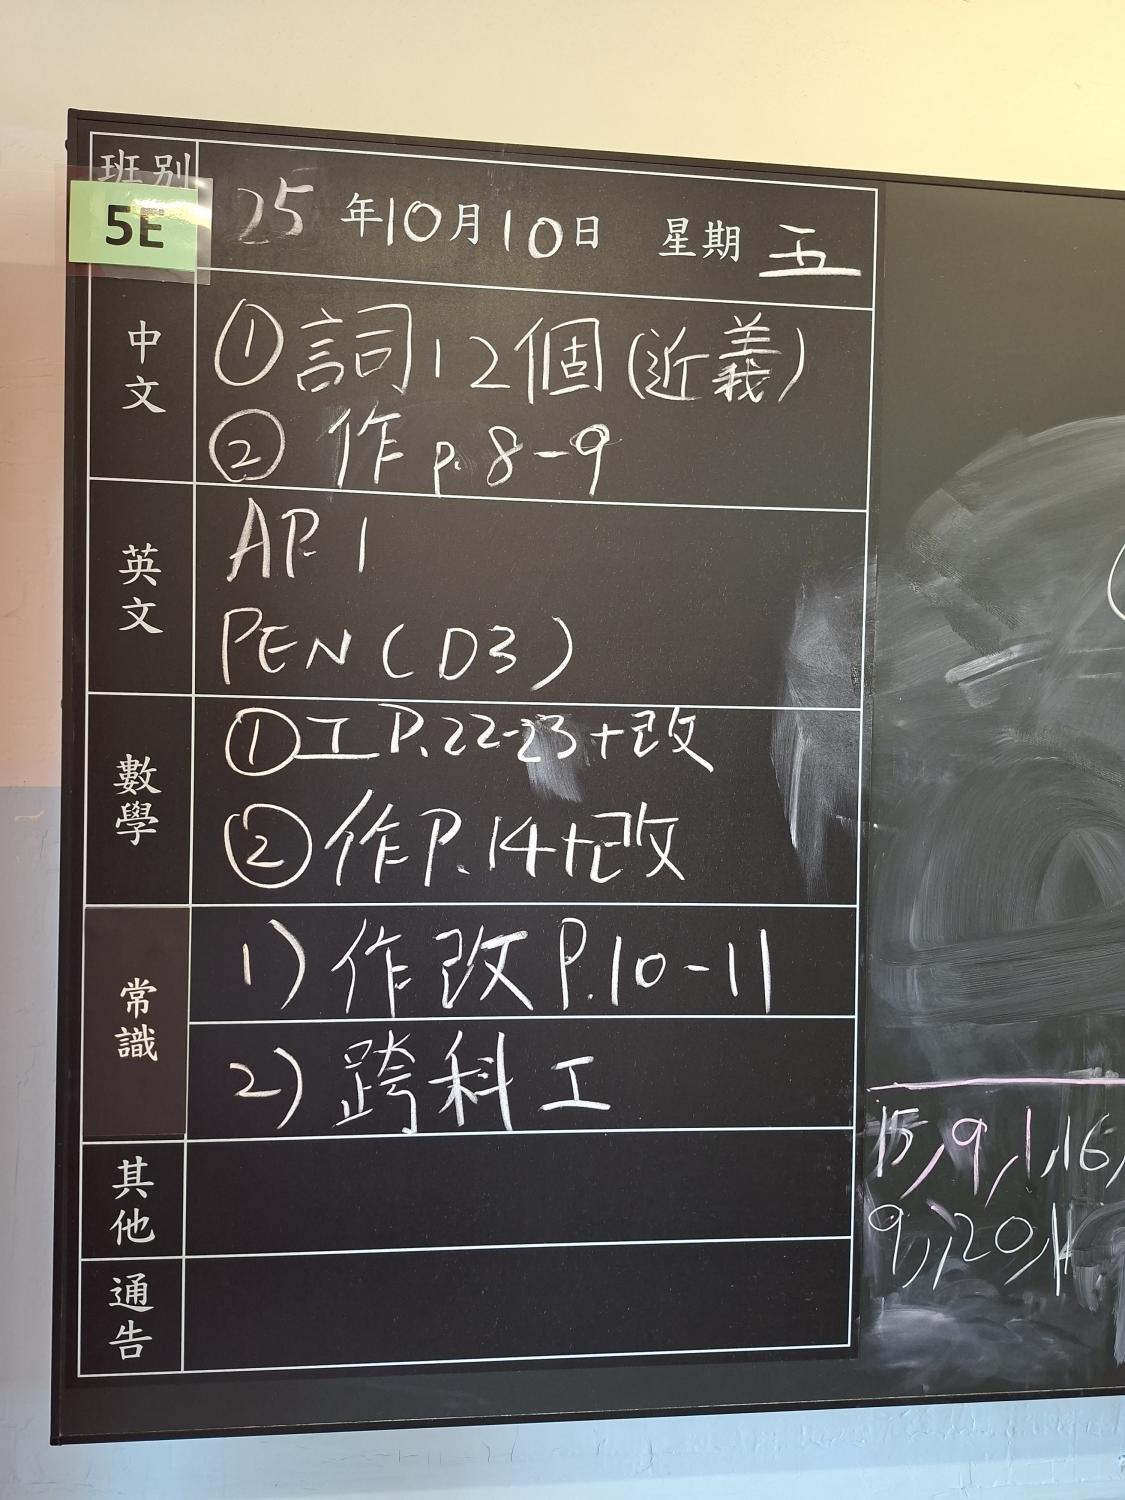 班別
5E
25年10月10日 星期五
中文
①詞12個(近義)
②作p.8-9
英文
AP.1
PEN(D3)
數學
①工P.22-23+改
②作P.14+改
常識
1)作改P.10-11
2)跨科工
其他
通告
15,9,1,16,
9,,20,